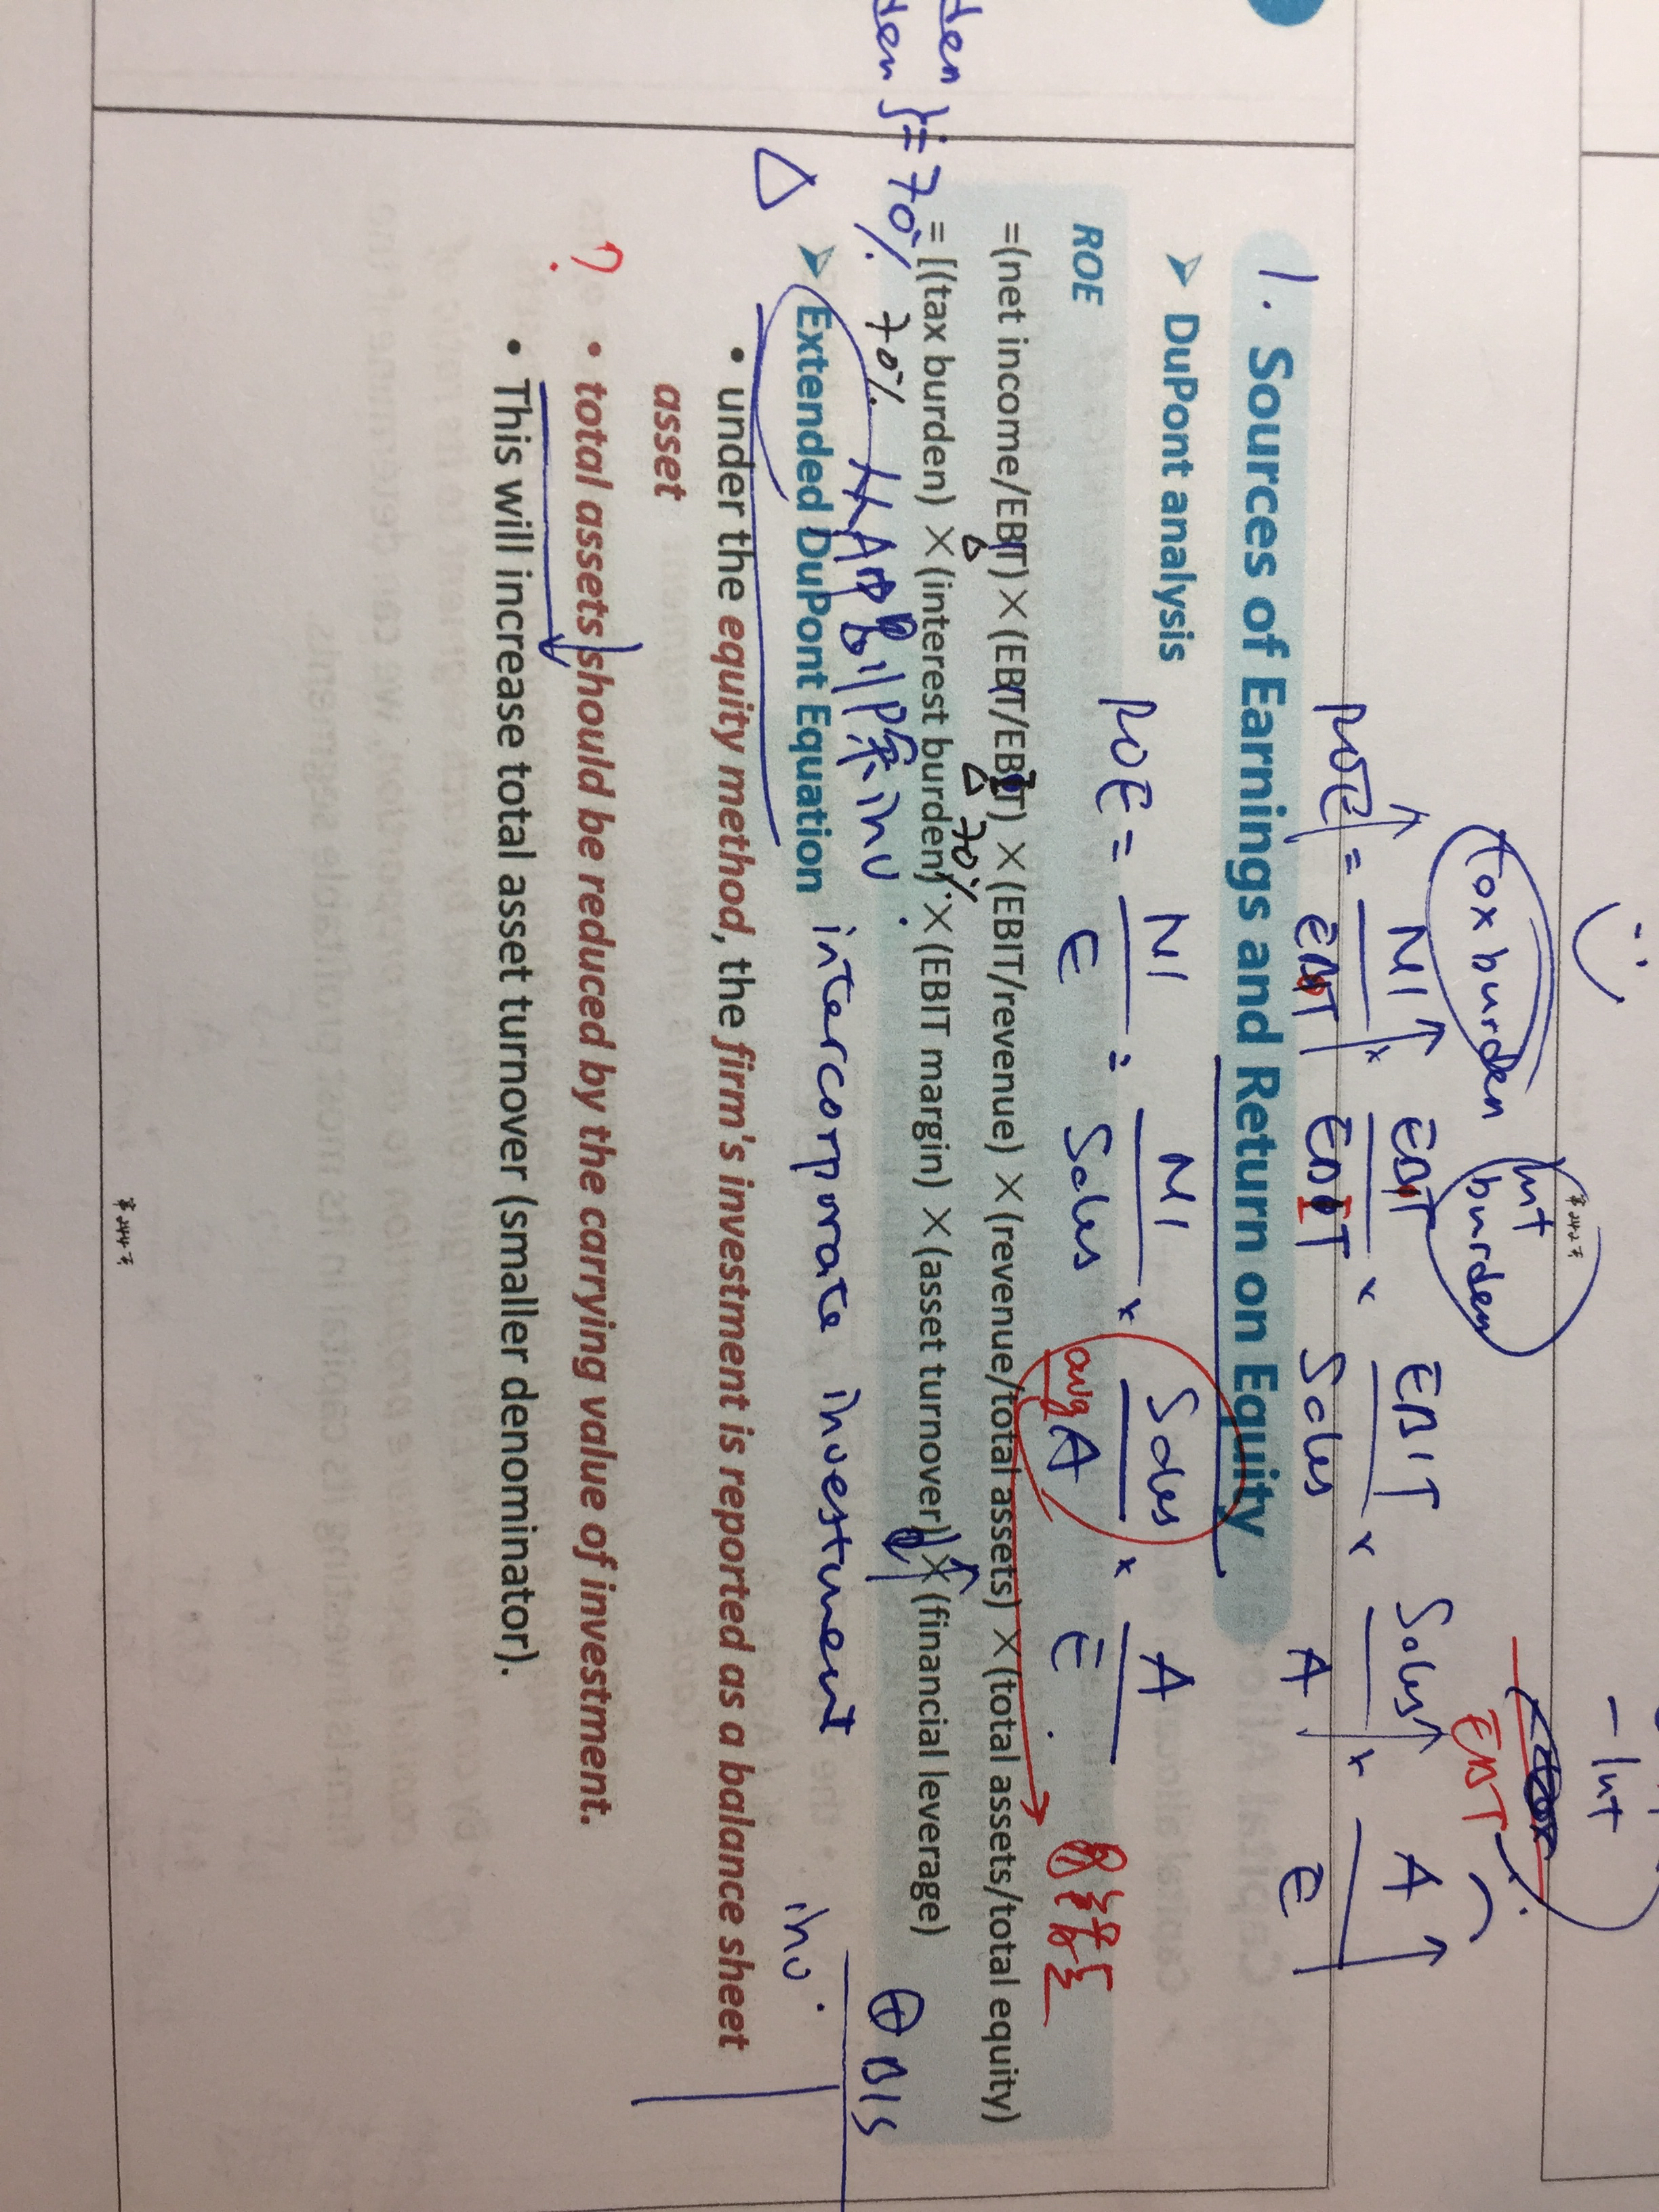 - Int
tax burden
Int burden
EBT
ROE = NI/EBT × EBT/EBIT × EBIT/Sales × Sales/A × A/E
1. Sources of Earnings and Return on Equity
➤ DuPont analysis
ROE = NI/E = NI/Sales × Sales/avg A × A/E
ROE
=(net income/EBT)×(EBT/EBIT)×(EBIT/revenue)×(revenue/total assets)×(total assets/total equity)
70%
= [(tax burden)×(interest burden)×(EBIT margin)×(asset turnover)]×(financial leverage)
den
den } = 70% 70%
inv.
⊕ B/S
➤ Extended DuPont Equation intercorporate investment
inv.
• under the equity method, the firm's investment is reported as a balance sheet
asset
? • total assets should be reduced by the carrying value of investment.
• This will increase total asset turnover (smaller denominator).